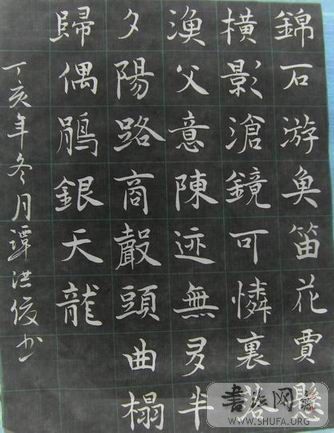 錦石游魚笛花賈髩
橫影滄鏡可憐裏
漁父意陳迹無多半
夕陽路商聲頭曲榻
歸偶鵑銀天龍
丁亥年冬月譚洪俊书
书法网
WWW.SHUFA.ORG